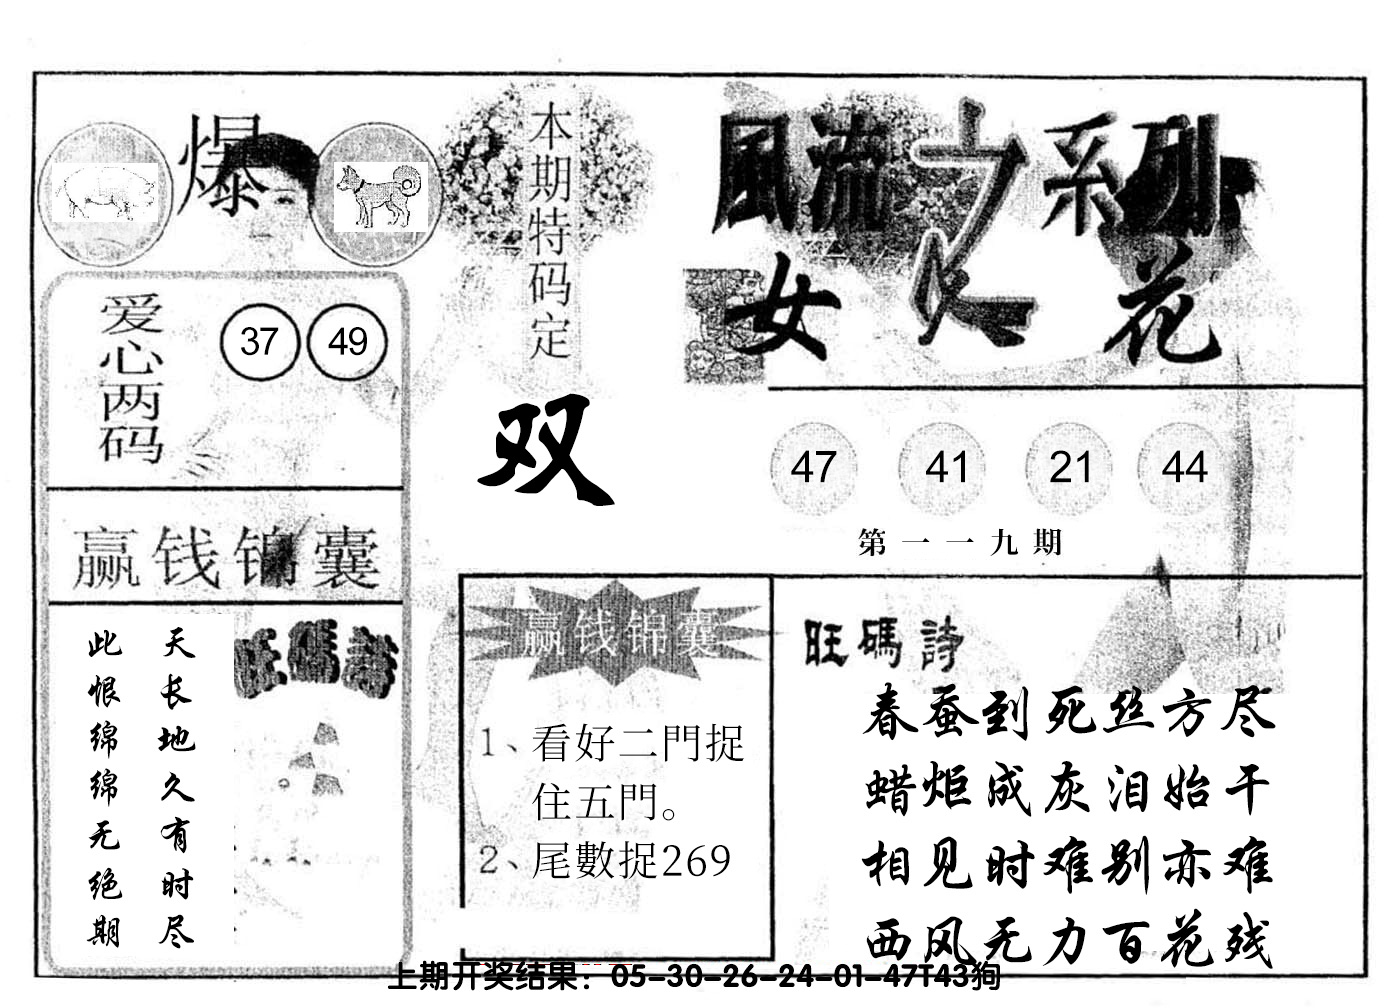 爆
本期特码定
双
風流之系列
女人花
爱心两码
37 49
47 41 21 44
第一一九期
赢钱锦囊
天长地久有时尽
此恨绵绵无绝期
旺碼詩
赢钱锦囊
1、看好二門捉
住五門。
2、尾數捉269
旺碼詩
春蚕到死丝方尽
蜡炬成灰泪始干
相见时难别亦难
西风无力百花残
上期开奖结果：05-30-26-24-01-47T43狗